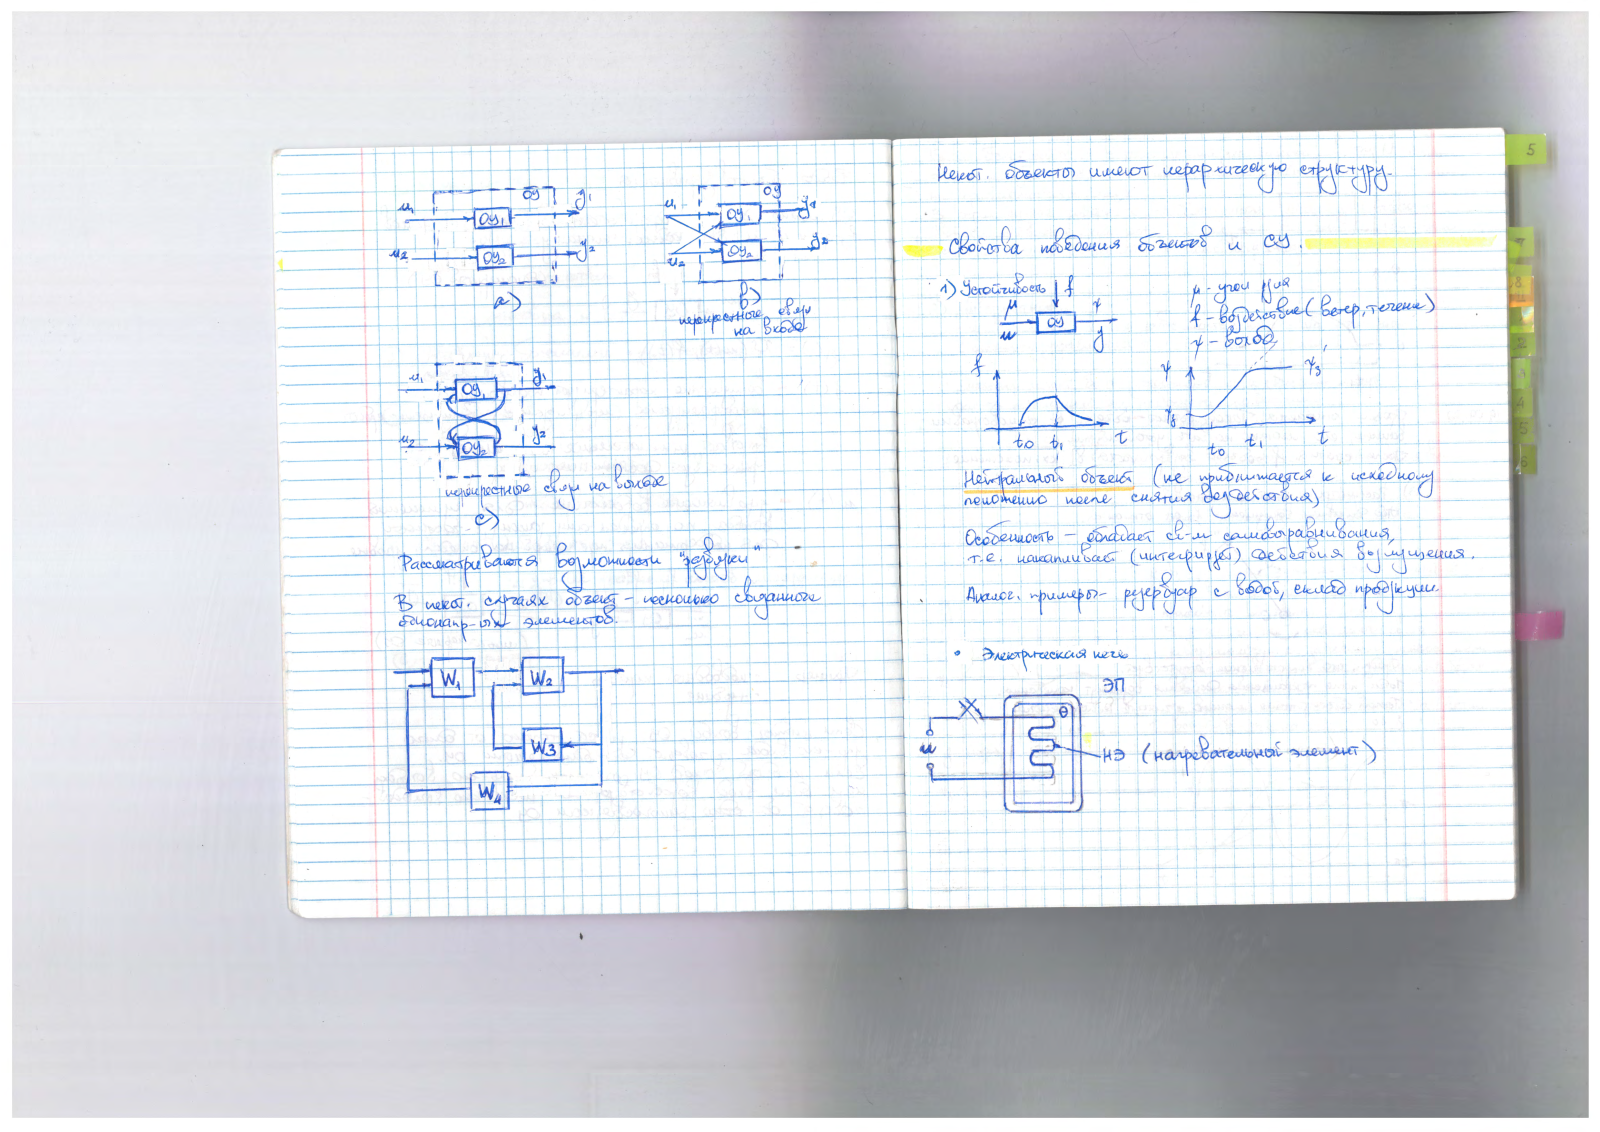 ОУ
u₁
ОУ₁
y₁
u₂
ОУ₂
y₂
а)
ОУ
u₁
ОУ₁
y₁
u₂
ОУ₂
y₂
в)
перекрестные связи
на входе
u₁
ОУ₁
y₁
u₂
ОУ₂
y₂
перекрестные связи на выходе
с)
Рассматриваются возможности "развязки"
В некот. случаях объект – несколько связанного
элементов.
W₁
W₂
W₃
W₄
Некот. объекты имеют иерархическую структуру.
Свойства поведения объектов и СУ.
1) Устойчивость
f
μ
ОУ
ψ
u
y
μ - угол руля
f - воздействие (ветер, течение)
ψ - выход
f
t₀
t₁
t
ψ
ψ₃
ψ₀
t₀
t₁
t
Нейтральный объект (не приближается к исходному
положению после снятия воздействия)
Особенность – обладает св-м самовыравнивания,
т.е. накапливает (интегрирует) действия возмущения.
Аналог. примеры - резервуар с водой, склад продукции.
• Электрическая печь
ЭП
θ
u
НЭ (нагревательный элемент)
5